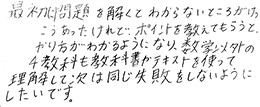 最初は問題を解くとわからないところがけっ
こうあったけれど、ポイントを教えてもらうと、
やり方がわかるようになり、数学以外の
4教科も教科書やテキストを使って
理解して次は同じ失敗をしないように
したいです。